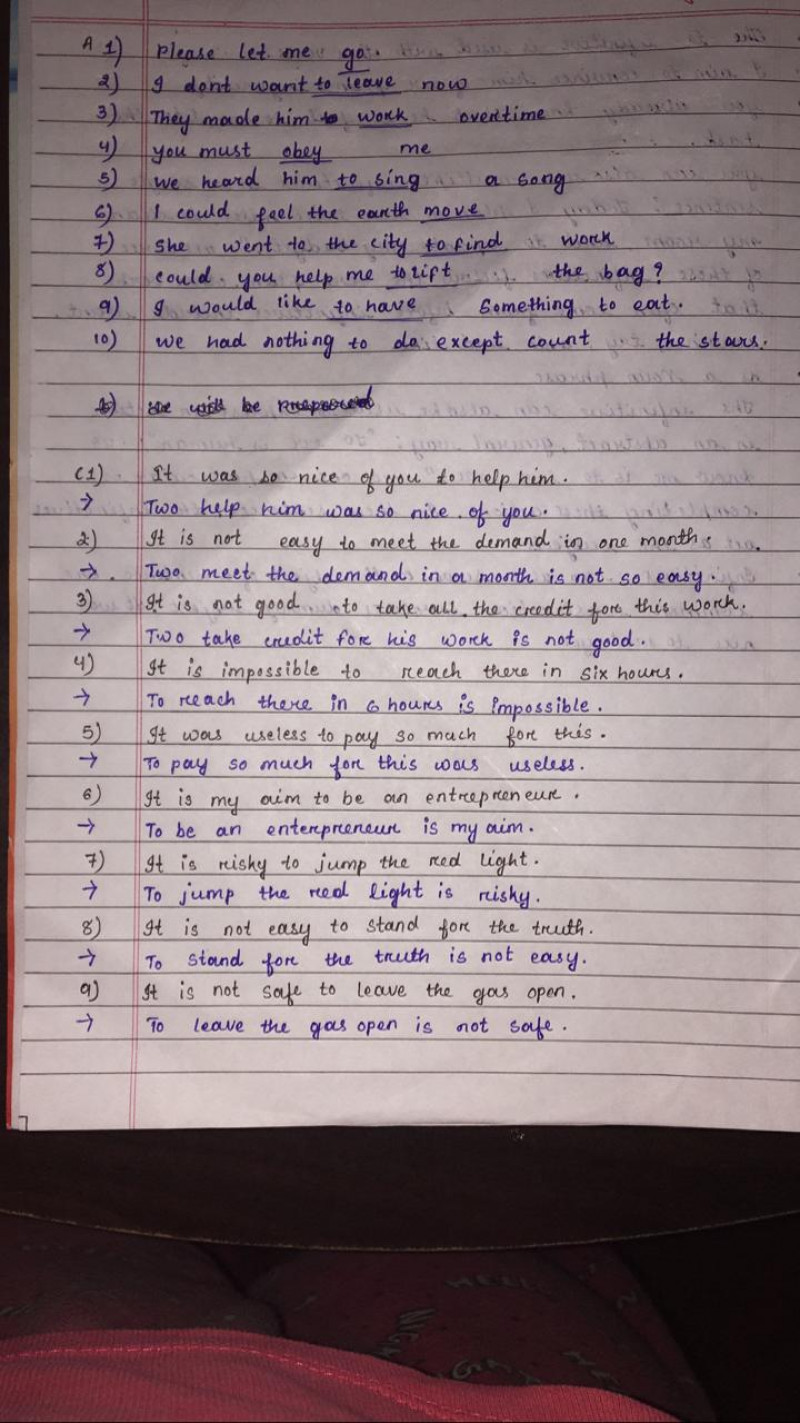 A 1) Please let me go.
2) I dont want to leave now
3) They made him to work overtime
4) you must obey me
5) we heard him to sing a song
6) I could feel the earth move
7) She went to the city to find work
8) could you help me to lift the bag?
9) I would like to have something to eat.
10) we had nothing to do except count the stars.
be
C 1) It was so nice of you to help him.
→ Two help him was so nice of you.
2) It is not easy to meet the demand in one month.
→ Two meet the demand in a month is not so easy.
3) It is not good to take all the credit for this work.
→ Two take credit for his work is not good.
4) It is impossible to reach there in six hours.
→ To reach there in 6 hours is impossible.
5) It was useless to pay so much for this.
→ To pay so much for this was useless.
6) It is my aim to be an entrepreneur.
→ To be an enterpreneur is my aim.
7) It is risky to jump the red light.
→ To jump the red light is risky.
8) It is not easy to stand for the truth.
→ To stand for the truth is not easy.
9) It is not safe to leave the gas open.
→ To leave the gas open is not safe.